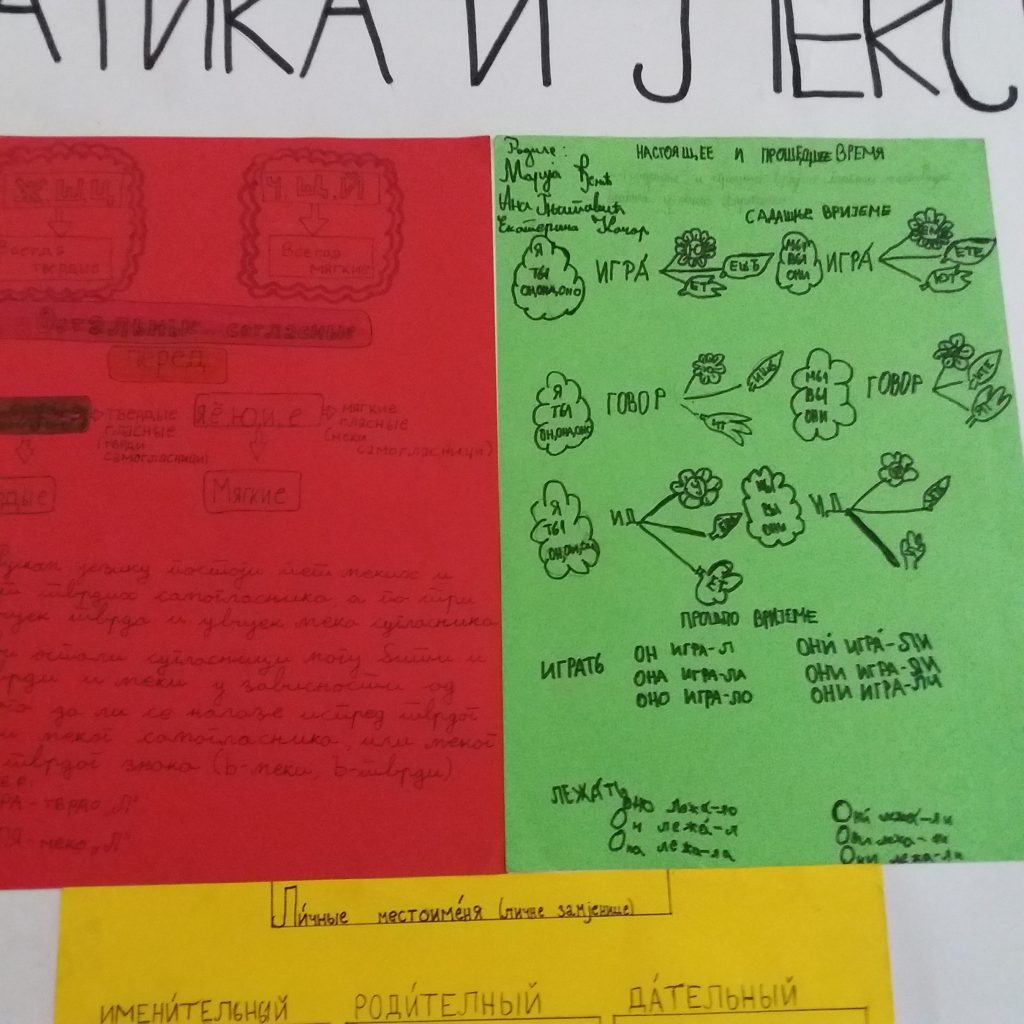 АТИКА И ЛЕКС
Ж Ш Ц
Всегда
твердые
Ч Щ Й
Всегда
мягкие
Остальные согласные
перед
твердые
гласные
(тврди
самогласници)
я ё ю и е
мягкие
гласные
(меки
самогласници)
Мягкие
језику постоји пет меких и
тврдих самогласника, а по три
тврда и увијек мека сугласника
остали сугласници могу бити и
тврди и меки у зависности од
да ли се налазе испред тврдог
меког самогласника, или меког
тврдог знака (ь-меки, ъ-тврди)
РА - тврдо „Л“
ЛЯ - меко „Л“
Радиле:
Марија
Ана
Екатерина
НАСТОЯЩЕЕ И ПРОШЕДШЕЕ ВРЕМЯ
САДАШЊЕ ВРИЈЕМЕ
Я
ТЫ
ОН,ОНА,ОНО
ИГРА́
Ю
ЕШЬ
ЕТ
МЫ
ВЫ
ОНИ
ИГРА́
ЕМ
ЕТЕ
ЮТ
Я
ТЫ
ОН,ОНА,ОНО
ГОВОР
Ю
ИШЬ
ИТ
МЫ
ВЫ
ОНИ
ГОВОР
ИТЕ
ЯТ
Я
ТЫ
ИД
У
ЕТ
МЫ
ВЫ
ОНИ
ИД
ПРОШЛО ВРИЈЕМЕ
ИГРАТЬ
ОН ИГРА-Л
ОНА ИГРА-ЛА
ОНО ИГРА-ЛО
ОНИ́ ИГРА́-ЛИ
ОНИ ИГРА-ЛИ
ОНИ ИГРА-ЛИ
ЛЕЖА́ТЬ
Оно лежа́-ло
Он лежа́-л
Она лежа-ла
Они́ лежа́-ли
Они лежа-ли
Они лежа-ли
Ли́чные местоиме́ня (личне замјенице)
ИМЕНИ́ТЕЛЬНЫЙ
РОДИ́ТЕЛНЫЙ
ДА́ТЕЛЬНЫЙ